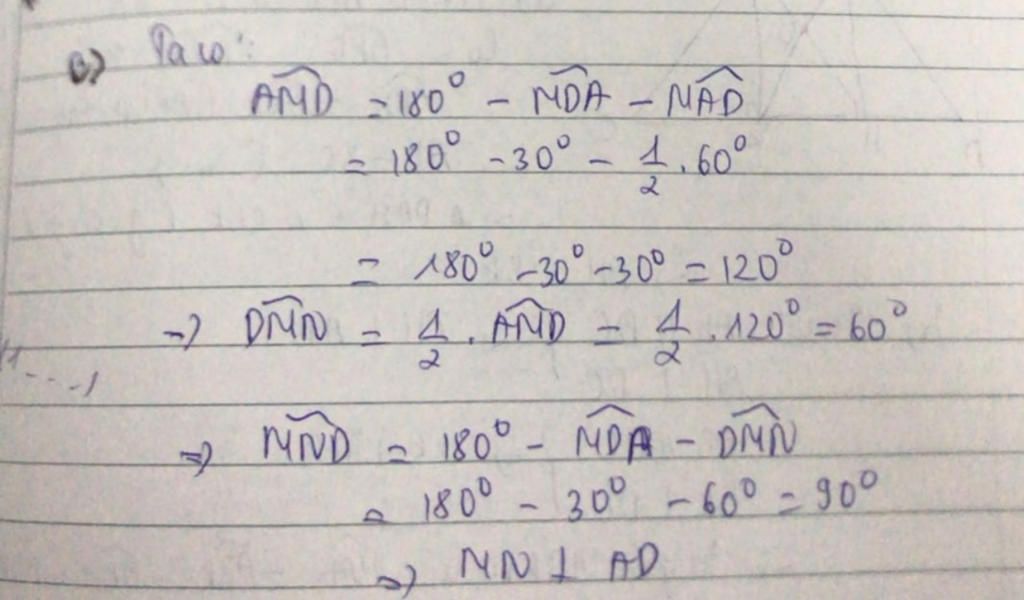 c) Ta có:
$\widehat{AMD} = 180^0 - \widehat{MDA} - \widehat{MAD}$
$= 180^0 - 30^0 - \frac{1}{2} . 60^0$
$= 180^0 - 30^0 - 30^0 = 120^0$
$\Rightarrow \widehat{DMN} = \frac{1}{2} . \widehat{AMD} = \frac{1}{2} . 120^0 = 60^0$
$\Rightarrow \widehat{MND} = 180^0 - \widehat{MDA} - \widehat{DMN}$
$= 180^0 - 30^0 - 60^0 = 90^0$
$\Rightarrow MN \perp AD$